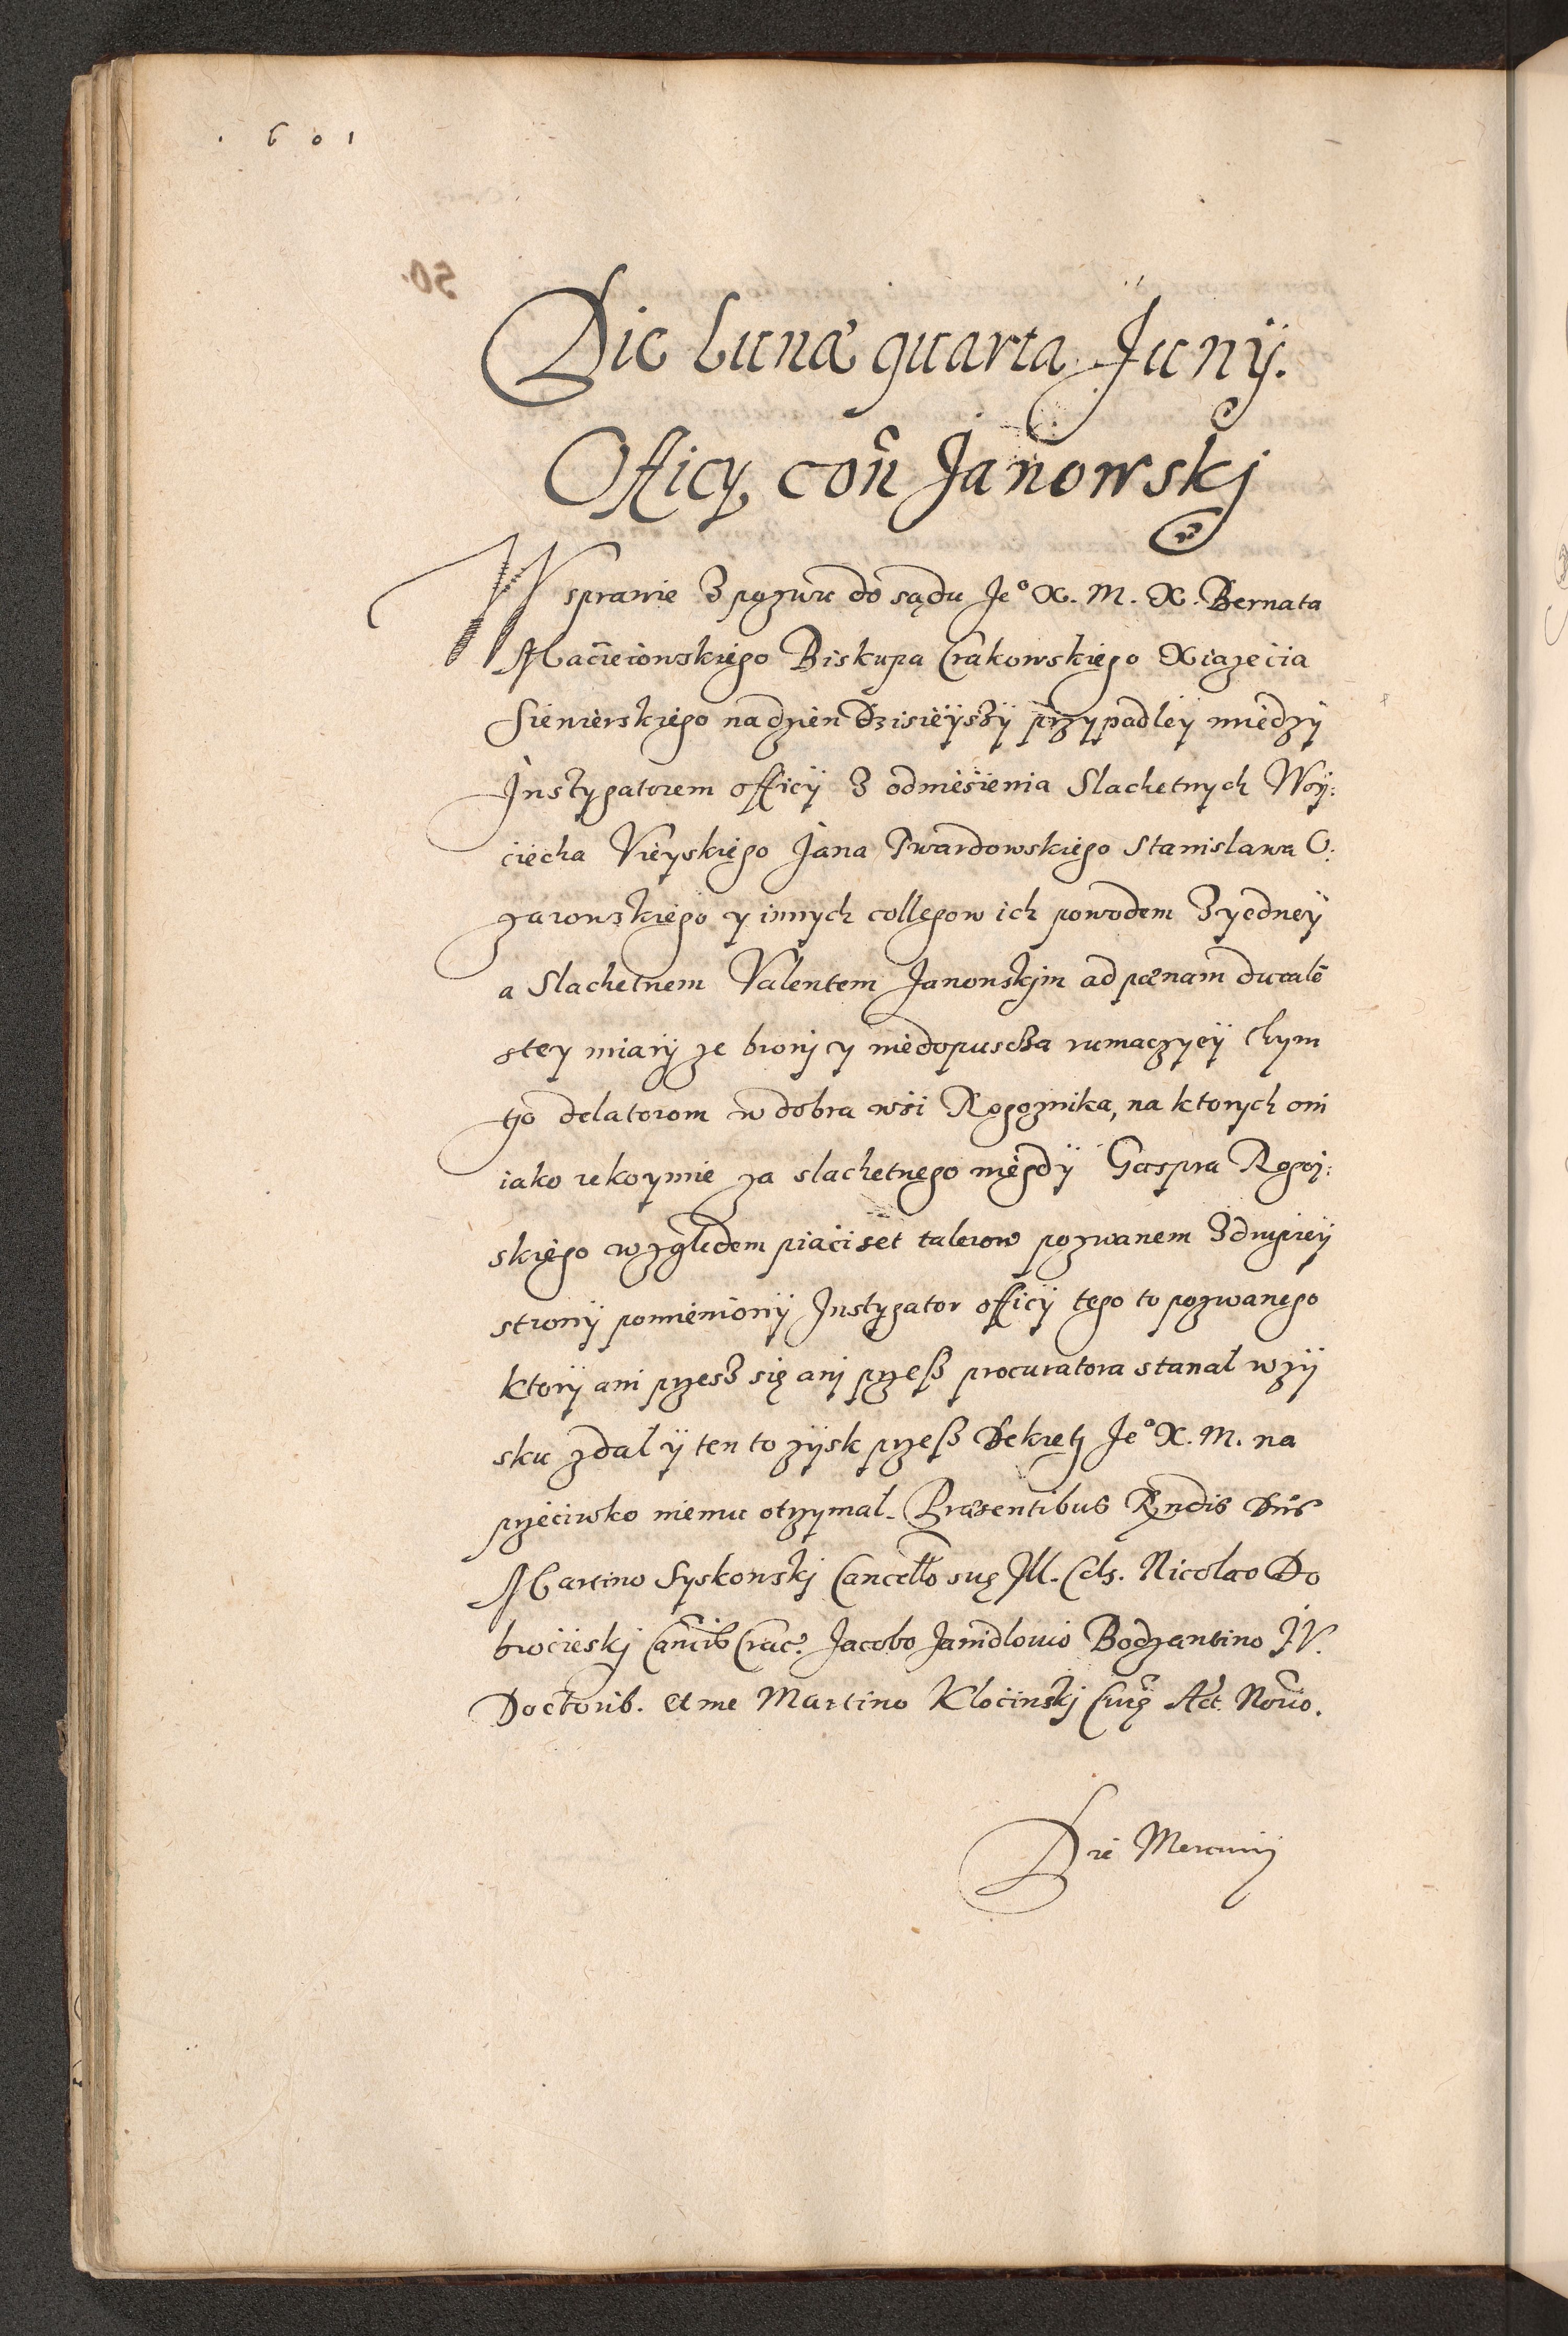 . 6 0 1
50.
Die Lunæ quarta Junÿ.
Officÿ coñ Janowskj
W sprawie Z pozwu do sądu Je° X. M. X. Bernata
Macieiowskiego Biskupa Crakowskiego Xiazecia
Siewierskiego na dzien Dzisieÿszÿ przypadłeÿ miedzÿ
Instygatorem officÿ Z odniesienia Slachetnych Woÿ:
ciecha Vieyskiego Jana Twardowskiego Stanislawa O:
zarowskiego y innych collegow ich powodem Z yedneÿ
a Slachetnem Valentem Janowskjm ad pœnam ducalē
stey miarÿ ze bronj y niedopuscza rumaczyeÿ tym
tjo delatorom w dobra wsi Rogoznika, na ktorych oni
iako rekoymie za slachetnego niegdÿ Gaspra Rogoj:
skiego wzgledem piaciset talerow pozwanem Z drugieÿ
stronÿ pomienionÿ Instygator officÿ tego to pozwanego
ktorÿ ani przesz się anj przesz procuratora stanal w zÿ
sku zdal ÿ ten to zÿsk przesz Dekretj Je° X. M. na
przeciwko niemu otrzymal. Præsentibus Rndis Dnis
Martino Syskowskj Cancello suę Ill. Cels. Nicolao Do
brocieskj Cancib Crac. Jacobo Janidlouio Bodzantino IV.
Doctorib. et me Martino Klocinskj Act. Norio.
Die Mercurij